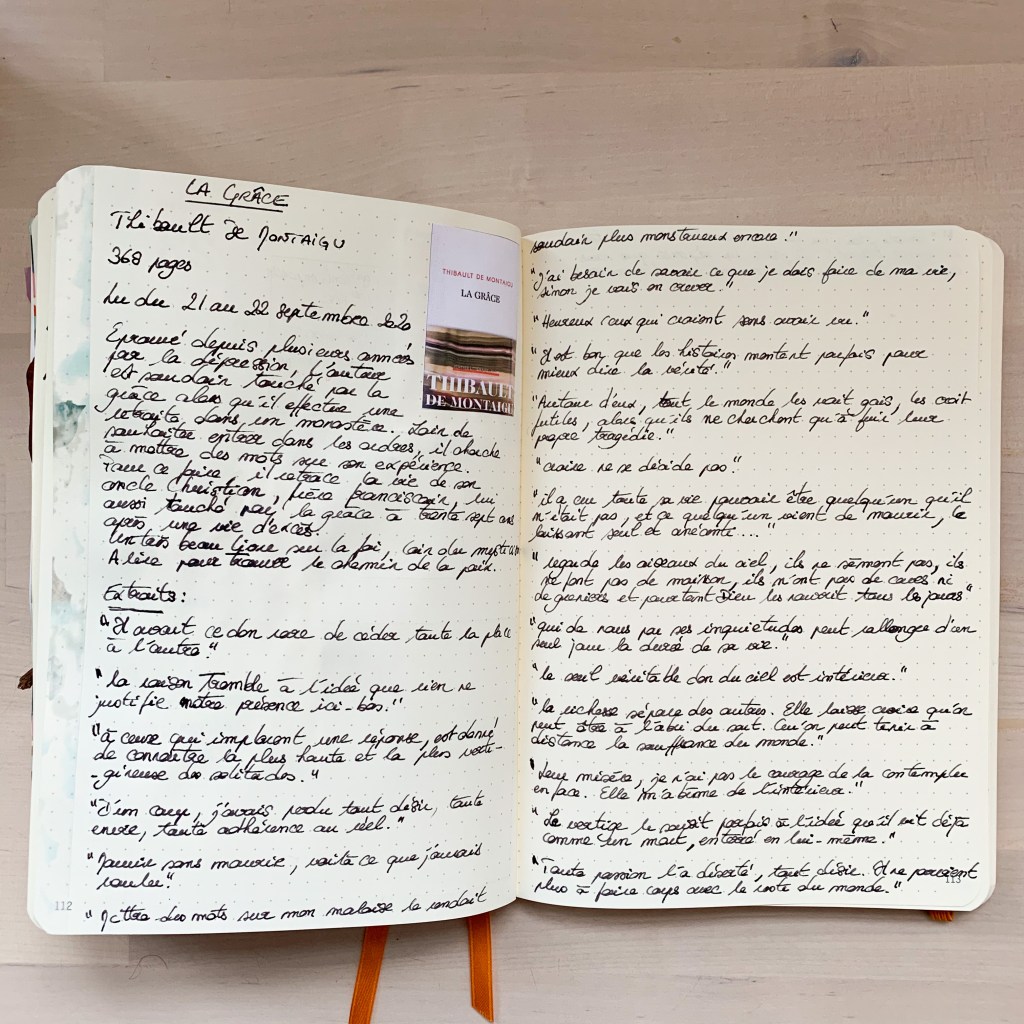 LA GRÂCE
Thibault de MONTAIGU
368 pages
Lu du 21 au 22 septembre 2020
THIBAULT DE MONTAIGU
LA GRÂCE
THIBAULT
DE MONTAIGU
Eprouvé depuis plusieurs années
par la dépression, l'auteur
est soudain touché par la
grâce alors qu'il effectue une
retraite dans un monastère. Loin de
souhaiter entrer dans les ordres, il cherche
à mettre des mots sur son expérience.
Pour ce faire, il retrace la vie de son
oncle Christian, frère franciscain, lui
aussi touché par la grâce à trente sept ans
après une vie d'excès.
Un très beau livre sur la foi, loin du mysticisme
A lire pour trouver le chemin de la paix.
Extraits :
"Il avait ce don rare de céder toute la place
à l'autre."
"la raison tremble à l'idée que rien ne
justifie notre présence ici-bas."
"à ceux qui implorent une réponse, est donné
de connaître la plus haute et la plus verti-
-gineuse des solitudes."
"D'un coup, j'avais perdu tout désir, toute
envie, toute adhérence au réel."
"Mourir sans mourir, voilà ce que j'avais
voulu".
"Mettre des mots sur mon malaise le rendait
112
soudain plus monstrueux encore."
"J'ai besoin de savoir ce que je dois faire de ma vie,
sinon je vais en crever."
"Heureux ceux qui croient sans avoir vu."
"Il est bon que les histoires mentent parfois pour
mieux dire la vérité."
"Autour d'eux, tout le monde les voit gais, les croit
futiles, alors qu'ils ne cherchent qu'à fuir leur
propre tragédie."
"croire ne se décide pas".
"il a cru toute sa vie pouvoir être quelqu'un qu'il
n'était pas, et ce quelqu'un vient de mourir, le
laissant seul et anéanti..."
"regarde les oiseaux du ciel, ils ne sèment pas, ils
ne font pas de maison, ils n'ont pas de caves ni
de greniers et pourtant Dieu les nourrit tous les jours"
"qui de nous par ses inquiétudes peut rallonger d'un
seul jour la durée de sa vie."
"le seul véritable don du ciel est intérieur."
"la richesse sépare des autres. Elle laisse croire qu'on
peut être à l'abri du sort. Qu'on peut tenir à
distance la souffrance du monde."
"Leur misère, je n'ai pas le courage de la contempler
en face. Elle m'abîme de l'intérieur."
"Le vertige le saisit parfois à l'idée qu'il vit déjà
comme un mort, enterré en lui-même."
"Toute passion l'a déserté, tout désir. Il ne parvient
plus à faire corps avec le reste du monde."
113